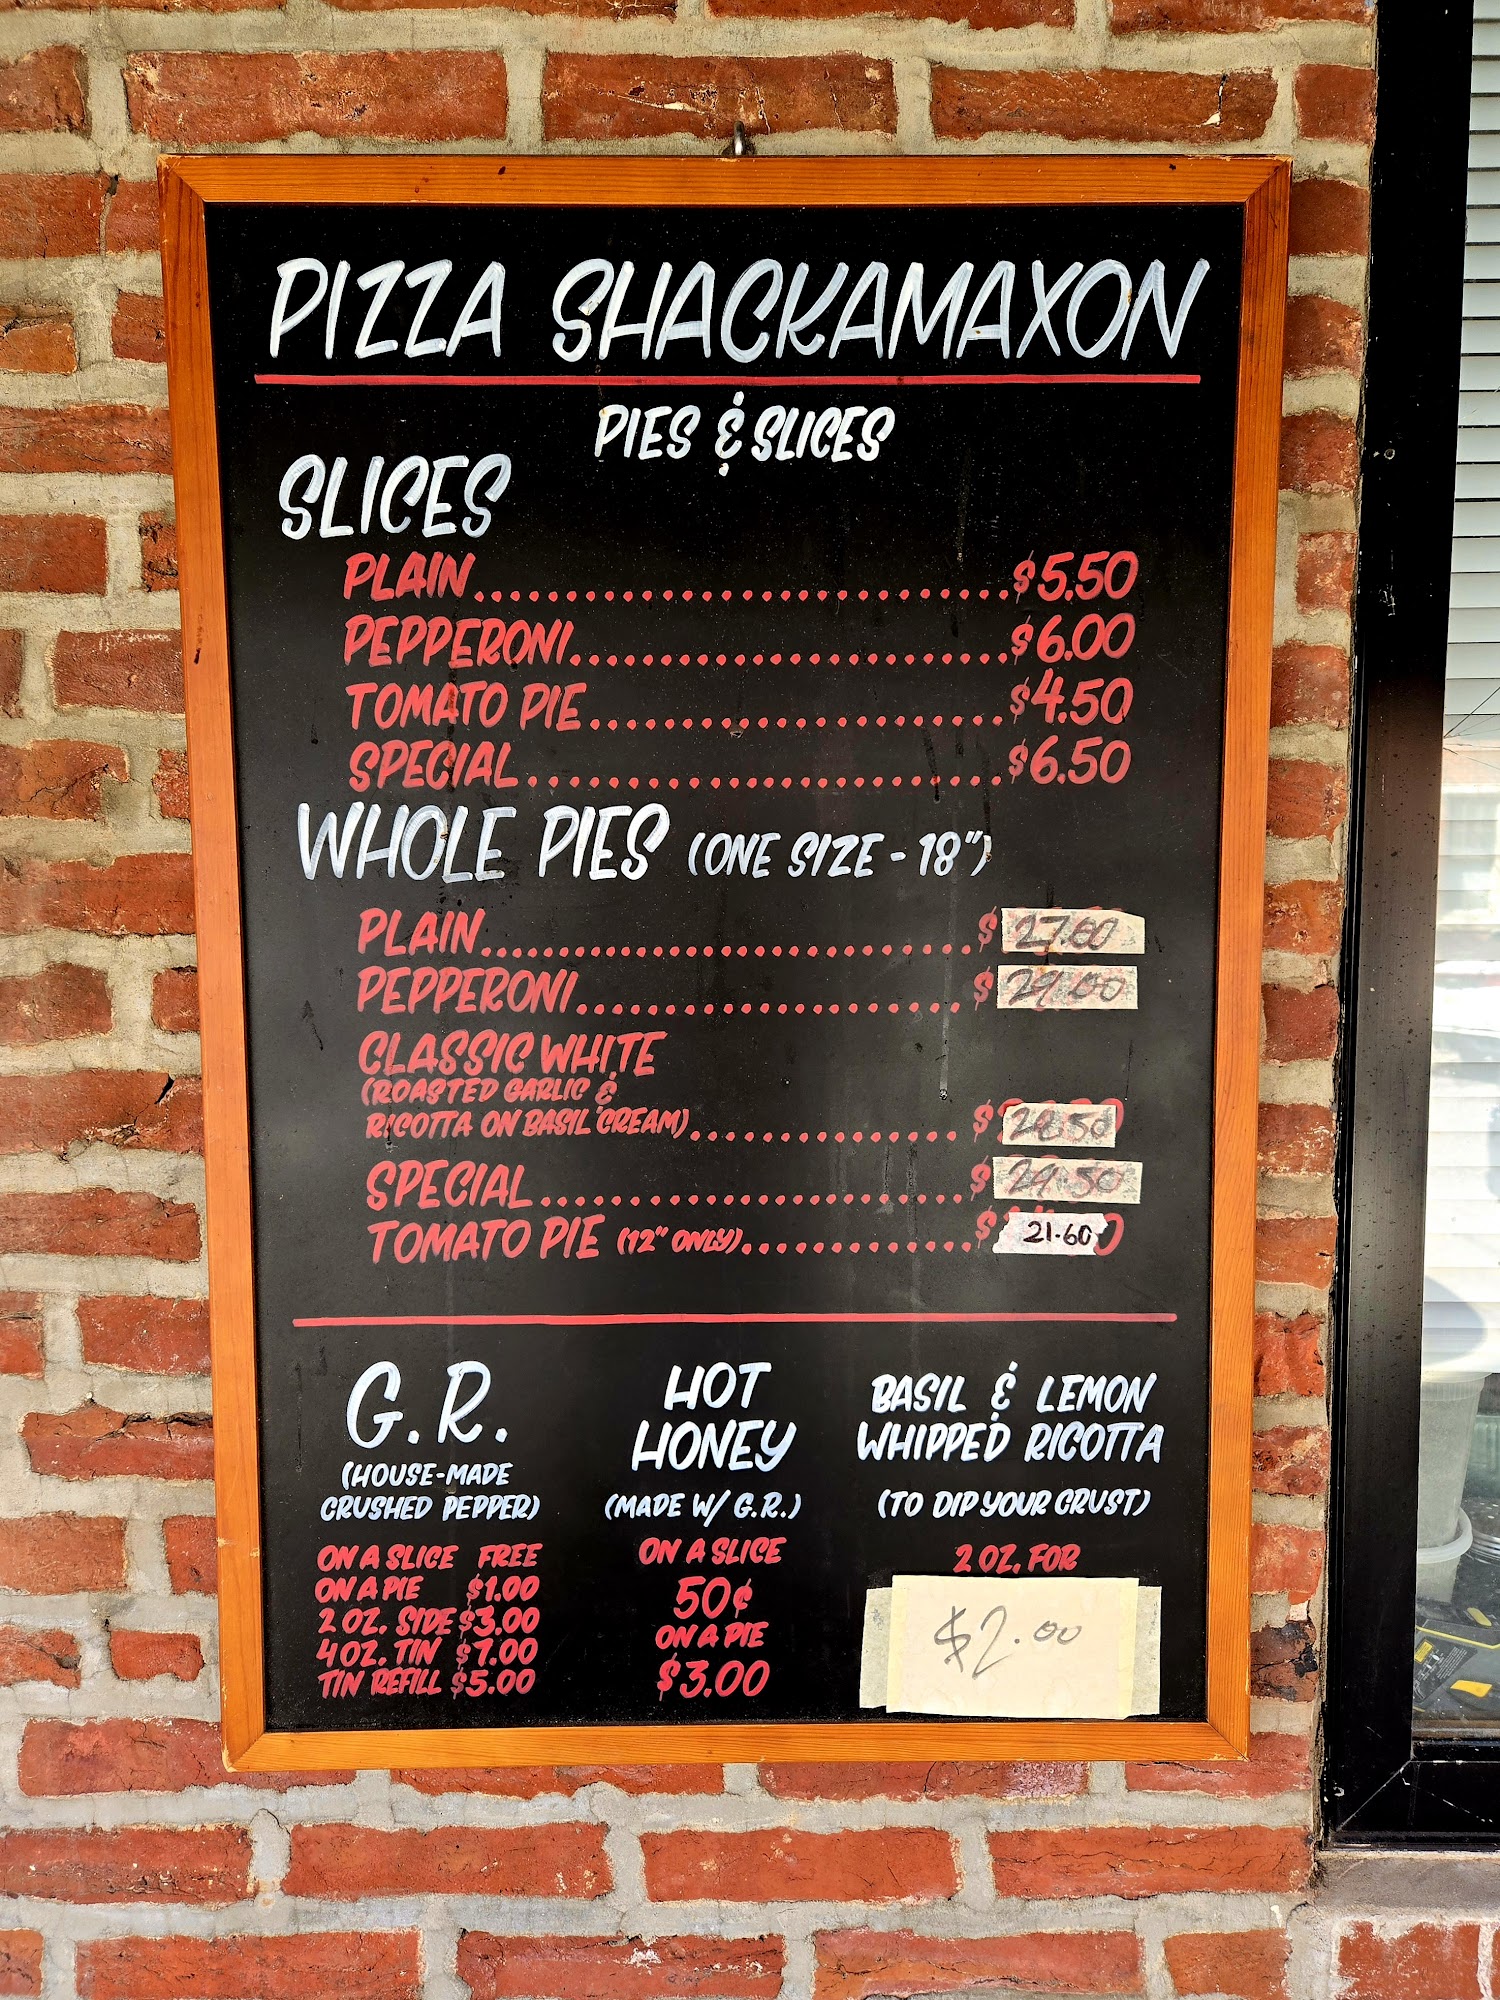 PIZZA SHACKAMAXON
PIES & SLICES
SLICES
PLAIN............................$5.50
PEPPERONI.......................$6.00
TOMATO PIE......................$4.50
SPECIAL.........................$6.50
WHOLE PIES (ONE SIZE - 18")
PLAIN...........................$
PEPPERONI.....................$
CLASSIC WHITE
(ROASTED GARLIC &
RICOTTA ON BASIL CREAM)...............$28.50
SPECIAL.......................$29.50
TOMATO PIE (12" ONLY).............$21.60
G.R.
(HOUSE-MADE
CRUSHED PEPPER)
ON A SLICE FREE
ON A PIE $1.00
2 OZ. SIDE $3.00
4 OZ. TIN $7.00
TIN REFILL $5.00
HOT
HONEY
(MADE W/ G.R.)
ON A SLICE
50¢
ON A PIE
$3.00
BASIL & LEMON
WHIPPED RICOTTA
(TO DIP YOUR CRUST)
2 OZ. FOR
$2.00